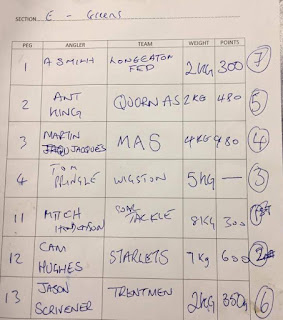 SECTION E - Greens
PEG ANGLER TEAM WEIGHT POINTS
1 A SMITH LONGEATON FED 2KG 300 7
2 ANT KING QUORN AS 2KG 480 5
3 MARTIN JACQUES MAS 4KG 980 4
4 TOM PRINGLE WIGSTON 5KG — 3
11 MITCH HENDERSON TACKLE 8KG 300 1ST
12 CAM HUGHES STARLETS 7Kg 600 2
13 JASON SCRIVENER TRENTMEN 2KG 350g 6